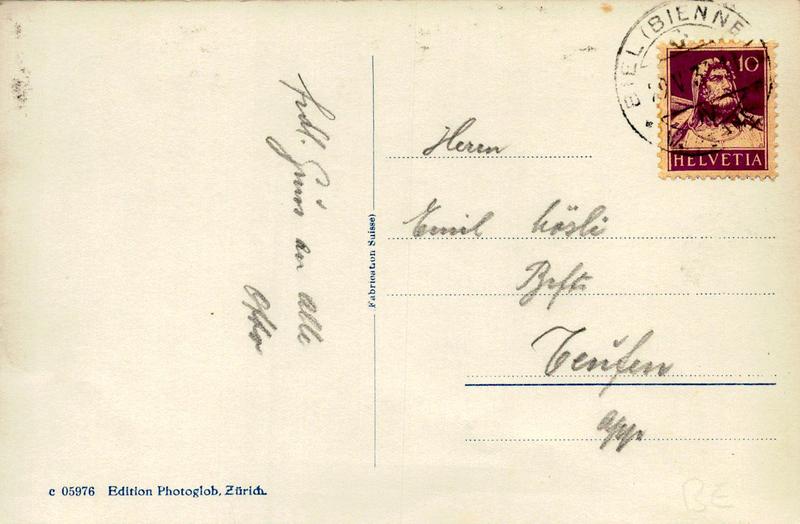 frdl. Gruss an Alle
Otto
Fabrication Suisse)
BIEL (BIENNE)
10
HELVETIA
Herrn
Emil Lösli
Teufen
App.
c 05976 Edition Photoglob, Zürich.
BE